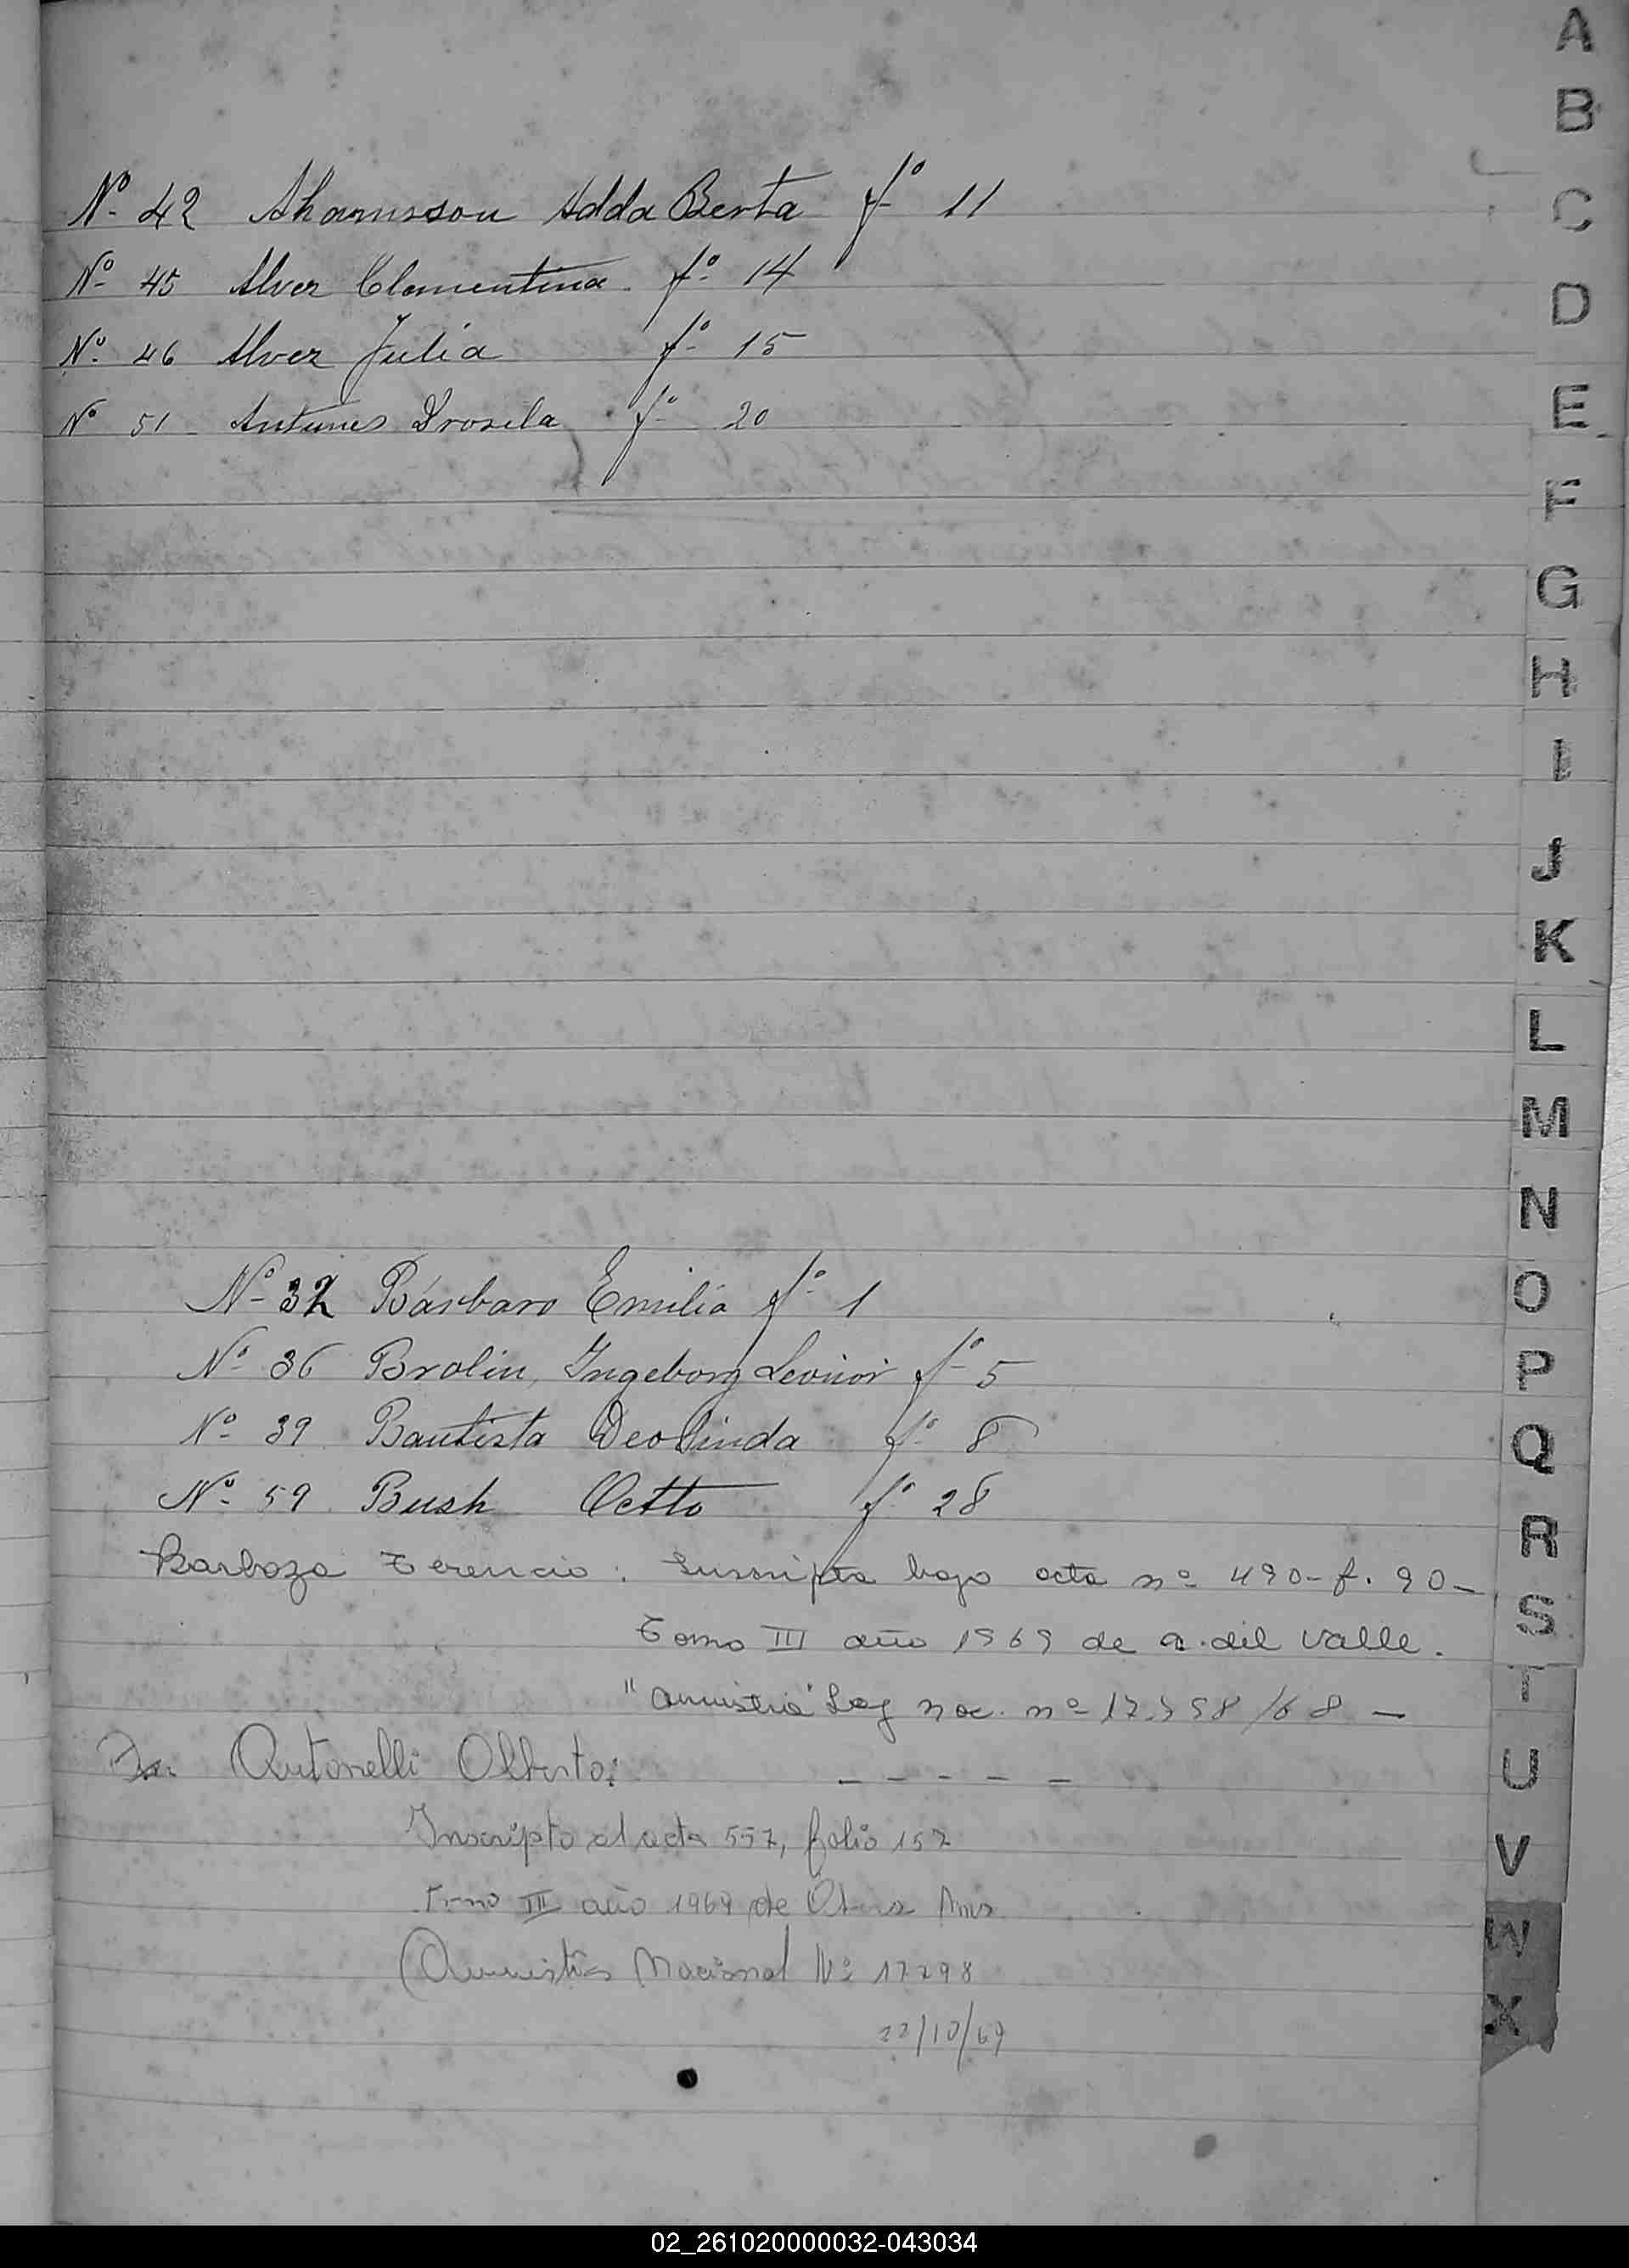 Nº 42 Ahamsson Adda Berta fº 11
Nº 45 Alvez Clementina fº 14
Nº 46 Alvez Julia fº 15
Nº 51 Antunes Drosila fº 20
Nº 32 Bárbaro Emilia fº 1
Nº 36 Brolin, Ingeborg Leonor fº 5
Nº 39 Bautista Deolinda fº 8
Nº 59 Bush Octto fº 28
Barboza Terencio: Inscripta bajo acta nº 490-f. 90-
Tomo III año 1969 de a. del Valle.
"Amnistia" Ley nac. nº /68 —
Antonelli Alberto:
- - - - -
Inscripto al acta 557, folio 157
Tomo III año 1969 de
(Amnistia Nacional Nº 17298
22/10/69
A
B
C
D
E
F
G
H
I
J
K
L
M
N
O
P
Q
R
S
T
U
V
W
X
02_261020000032-043034